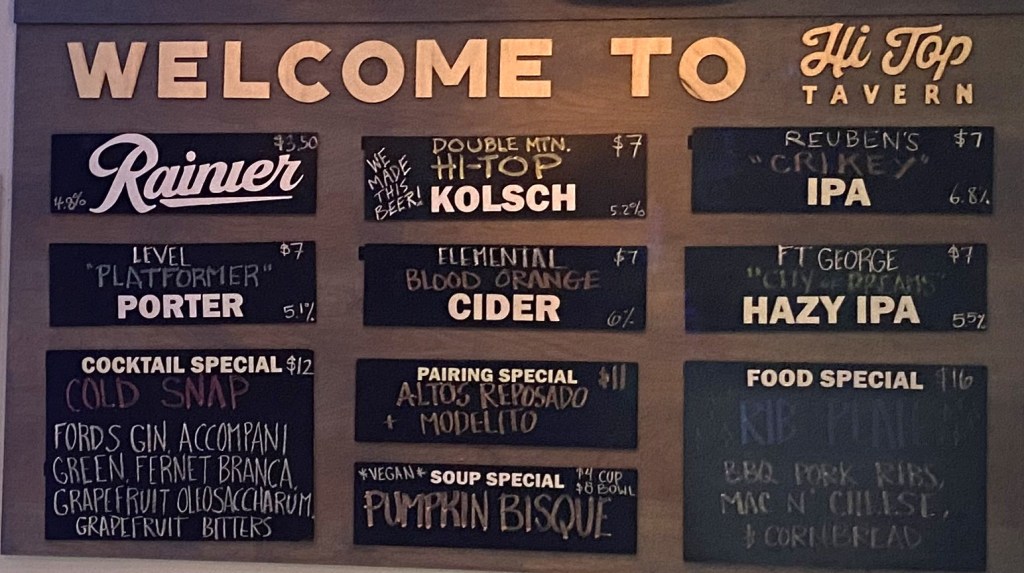 WELCOME TO
Hi Top
TAVERN
$3.50
Rainier
4.8%
DOUBLE MTN. $7
HI-TOP
KOLSCH
WE
MADE
THIS
BEER!
5.2%
REUBEN'S $7
"CRIKEY"
IPA
6.8%
LEVEL $7
"PLATFORMER"
PORTER
5.1%
ELEMENTAL $7
BLOOD ORANGE
CIDER
6%
FT GEORGE $7
"CITY OF DREAMS"
HAZY IPA
5.5%
COCKTAIL SPECIAL $12
COLD SNAP
FORDS GIN, ACCOMPANI
GREEN, FERNET BRANCA,
GRAPEFRUIT OLEOSACCHARUM,
GRAPEFRUIT BITTERS
PAIRING SPECIAL $11
ALTOS REPOSADO
+ MODELITO
*VEGAN* SOUP SPECIAL $4 CUP
$8 BOWL
PUMPKIN BISQUE
FOOD SPECIAL $16
RIB
BBQ PORK RIBS,
MAC N' CHEESE,
& CORNBREAD